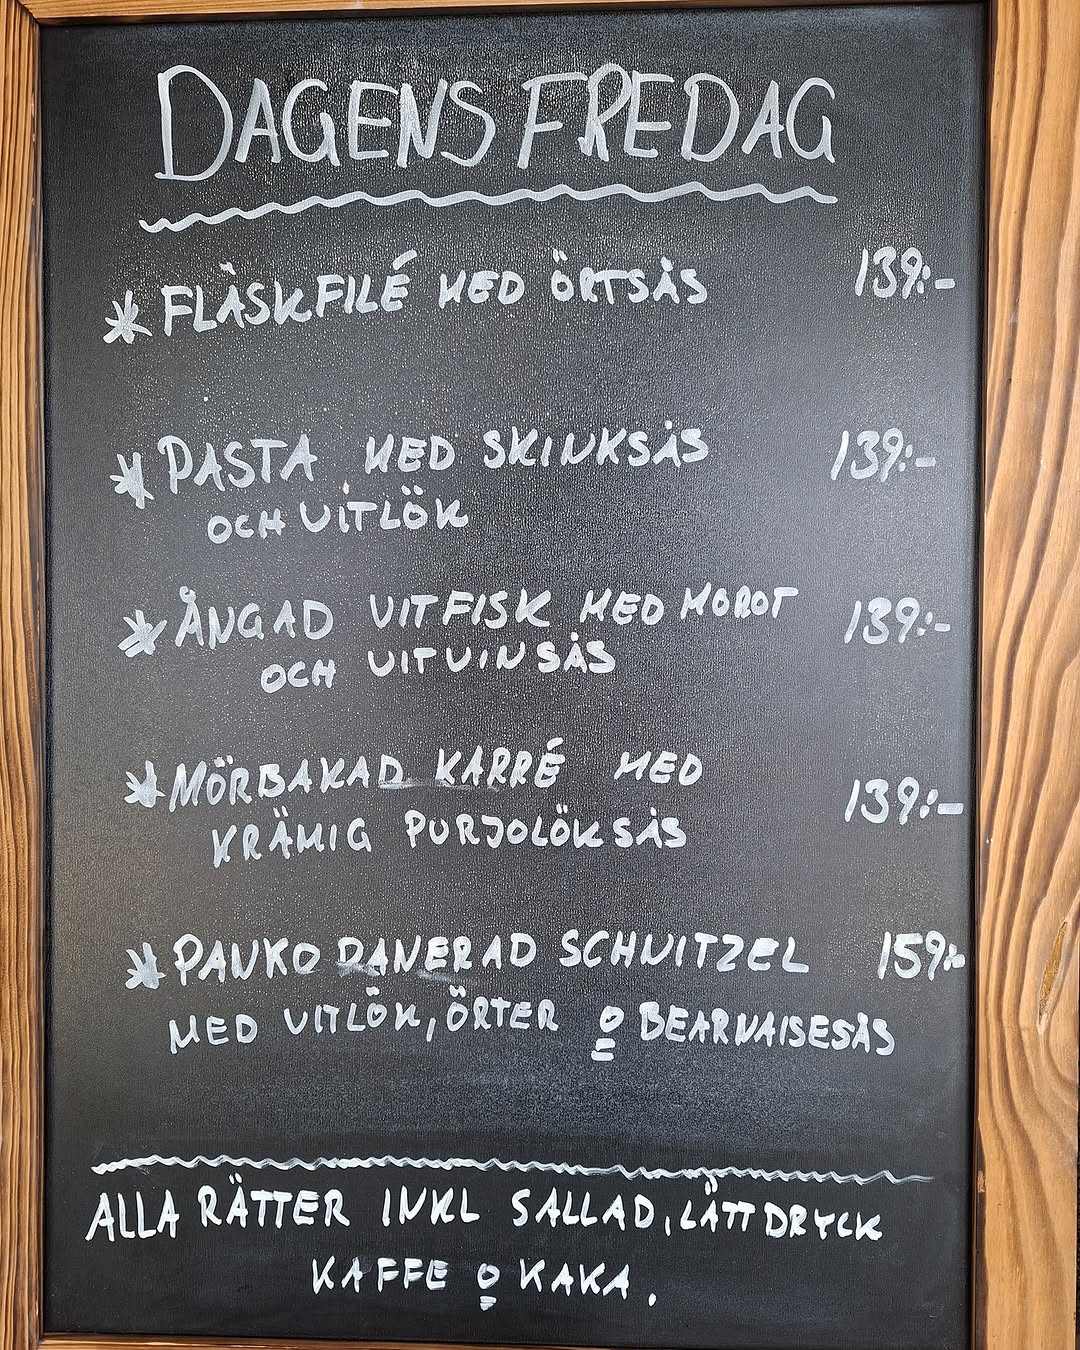 DAGENS FREDAG
* FLÄSKFILÉ MED ÖRTSÅS 139:-
* PASTA MED SKINKSÅS 139:-
OCH VITLÖK
* ÅNGAD VITFISK MED MOROT 139:-
OCH VITVINSÅS
* MÖRBAKAD KARRÉ MED
KRÄMIG PURJOLÖKSÅS 139:-
* PANKO PANERAD SCHNITZEL 159:-
MED VITLÖK, ÖRTER o BEARNAISESÅS
ALLA RÄTTER INKL SALLAD, LÄTTDRYCK
KAFFE o KAKA.